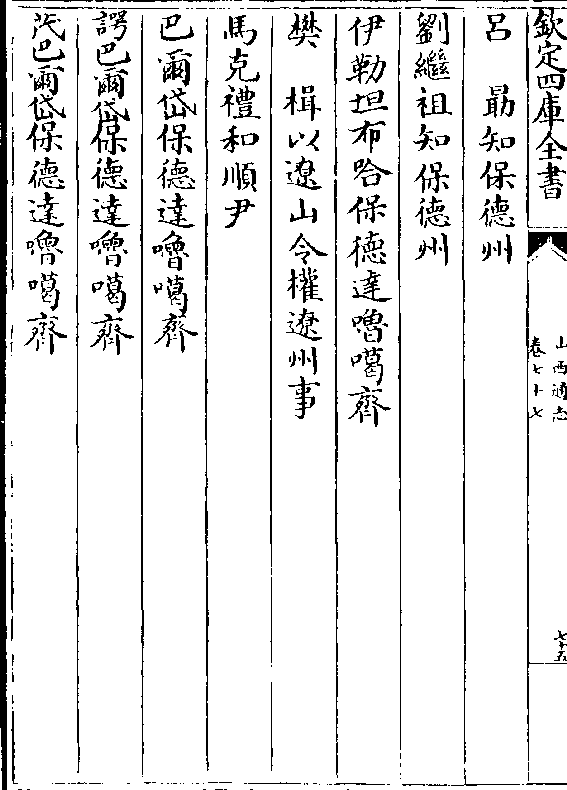 欽定四庫全書
山西通志
卷七十七
七十五
呂　勗知保德州
劉繼祖知保德州
伊勒坦布哈保德達嚕噶齊
樊　楫以遼山令權遼州事
馬克禮和順尹
巴爾岱保德達嚕噶齊
諤巴爾岱保德達嚕噶齊
茂巴爾岱保德達嚕噶齊